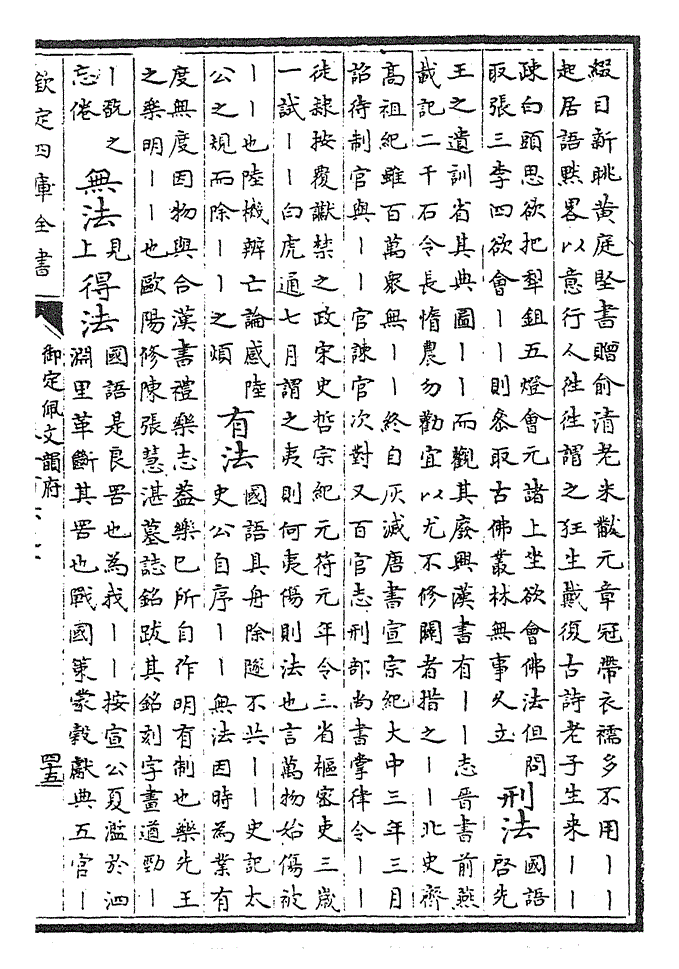 綴日新眺黄庭堅書贈俞清老米黻元章冠帶衣襦多不用丨丨
起居語黙畧以意行人徃徃謂之狂生戴復古詩老子生来丨丨
疎白頭思欲把犂鉏五燈會元諸上坐欲會佛法但問
取張三李四欲會丨丨則叅取古佛叢林無事乆立
刑法
國語
啓先
王之遺訓省其典圖丨丨而觀其廢興漢書有丨丨志晉書前燕
載記二千石令長惰農勿勸宜以尤不修闢者措之丨丨北史齊
高祖紀雖百萬衆無丨丨終自灰滅唐書宣宗紀大中三年三月
詔待制官與丨丨官諫官次對又百官志刑部尚書掌律令丨丨
徒隸按覆讞禁之政宋史哲宗紀元符元年令三省樞密吏三歲
一試丨丨白虎通七月謂之夷則何夷傷則法也言萬物始傷被
丨丨也陸機辨亡論感陸
公之規而除丨丨之煩
有法
國語具舟除隧不共丨丨史記太
史公自序丨丨無法因時為業有
度無度因物與合漢書禮樂志葢樂已所自作明有制也樂先王
之樂明丨丨也歐陽修陳張慧湛墓誌銘跋其銘刻字畫遒勁丨
丨翫之
忘倦
無法
見
上
得法
國語是良罟也為我丨丨按宣公夏濫於泗
淵里革斷其罟也戰國策蒙穀獻典五官丨
欽定四庫全書
御定佩文韻府
四五